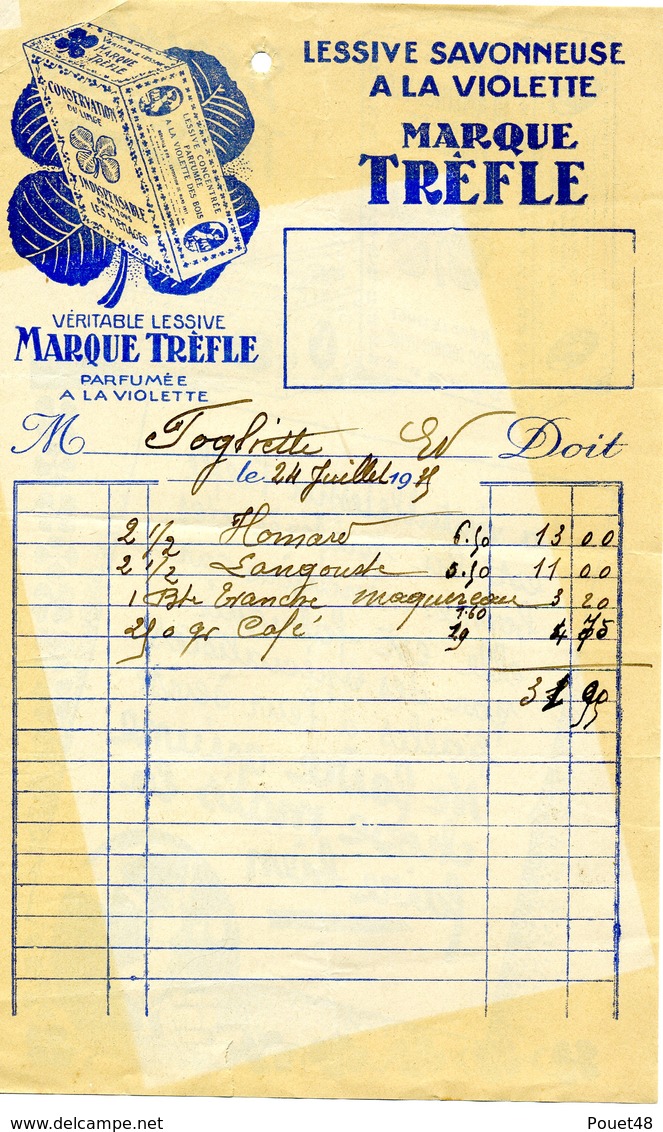 VÉRITABLE LESSIVE
MARQUE
TRÈFLE
CONSERVATION
DU LINGE
INDISPENSABLE
DANS TOUS
LES MÉNAGES
LESSIVE CONCENTRÉE
PARFUMÉE
A LA VIOLETTE DES BOIS
VÉRITABLE LESSIVE
MARQUE TRÈFLE
PARFUMÉE
A LA VIOLETTE
LESSIVE SAVONNEUSE
A LA VIOLETTE
MARQUE
TRÊFLE
M Doit
le 24 Juillet 19
2 1/2 Homard 6.50 13 00
2 1/2 Langouste 5.50 11 00
1 Bte maquereau 3 20
250 gr Café 19 4 75
31 95
Pouet48